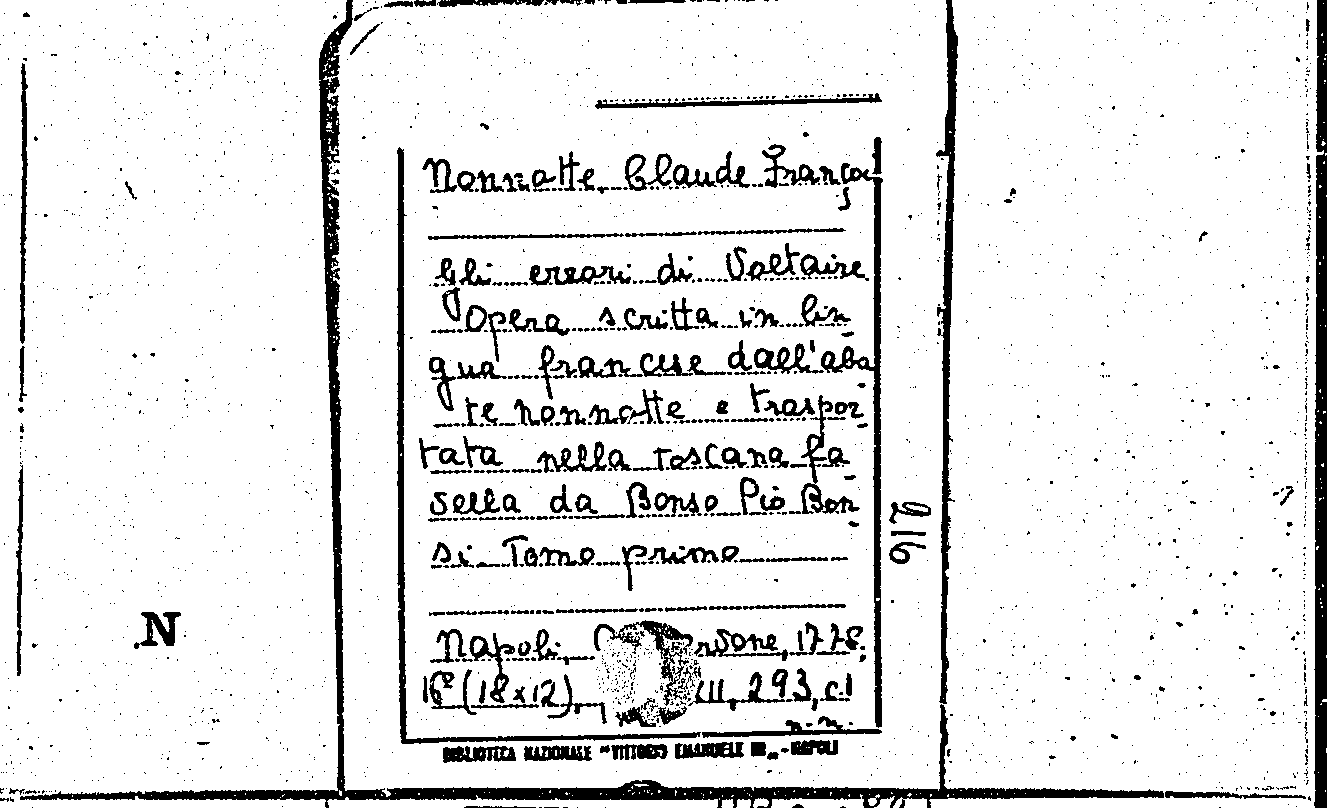 Nonnatte, Claude Françoi
s
Gli errori di Voltaire
Opera scritta in lin
gua francese dall'aba
te nonnotte e traspor
tata nella toscana fa
vella da Bonso Pio Bon
si. Tomo primo
Napoli, 1778.
16° (18x12), 293, c.1
n.n.
BIBLIOTECA NAZIONALE "VITTORIO EMANUELE III" - NAPOLI
216
N